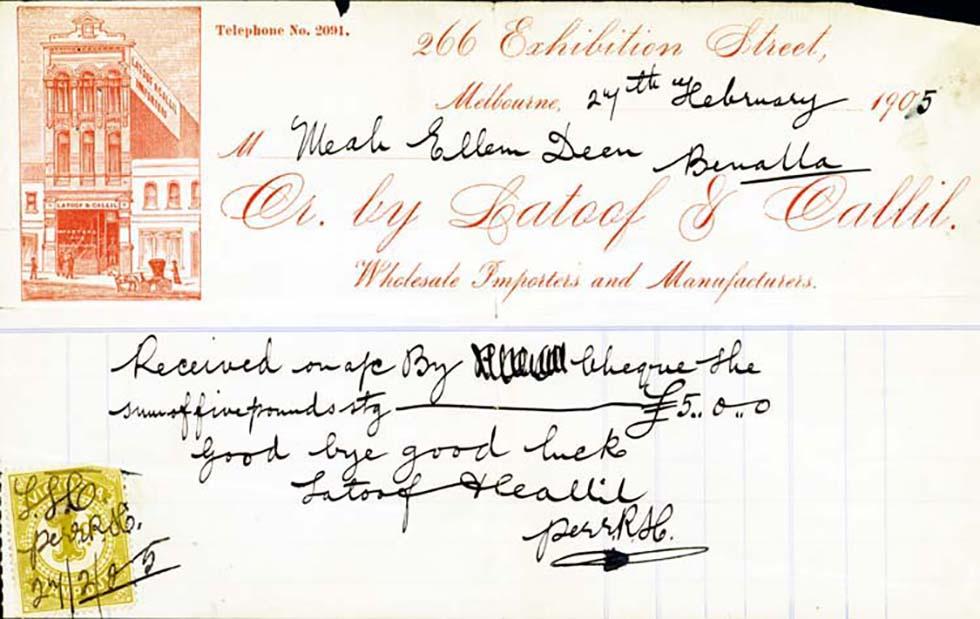 Telephone No. 2091.
266 Exhibition Street,
Melbourne, 27th February 1905
M Meah Ellem Deen Benalla
Cr. by Latoof & Callil.
Wholesale Importers and Manufacturers.
LATOOF & CALLIL
IMPORTERS
LATOOF & CALLIL
Received on a/c By Cheque the
sum of five pounds stg £5..0..0
Good bye good luck
Latoof & Callil
per R.H.
L. & C.
per R.H.
27/2/05